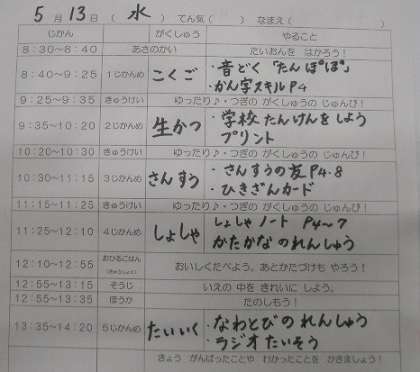 5 月 13 日 （ 水 ） てん気（ ） なまえ（
じかん がくしゅう やること
8:30～8:40 あさのかい たいおんを はかろう！
8:40～9:25 1じかんめ こくご ・音どく「たんぽぽ」
・かん字スキルP4
9:25～9:35 きゅうけい ゆったり♪・つぎの がくしゅうの じゅんび！
9:35～10:20 2じかんめ 生かつ ・学校たんけんをしよう
プリント
10:20～10:30 きゅうけい ゆったり♪・つぎの がくしゅうの じゅんび！
10:30～11:15 3じかんめ さんすう ・さんすうの友P4・8
・ひきざんカード
11:15～11:25 きゅうけい ゆったり♪・つぎの がくしゅうの じゅんび！
11:25～12:10 4じかんめ しょしゃ しょしゃノート P4～7
かたかなのれんしゅう
12:10～12:55 おひるごはん おいしくたべよう。あとかたづけも やろう！
12:55～13:15 そうじ いえの 中を きれいに しよう。
12:55～13:35 ほうか たのしもう！
13:35～14:20 5じかんめ たいいく ・なわとびのれんしゅう
・ラジオたいそう
きょう がんばったことや わかったことを かきましょう！